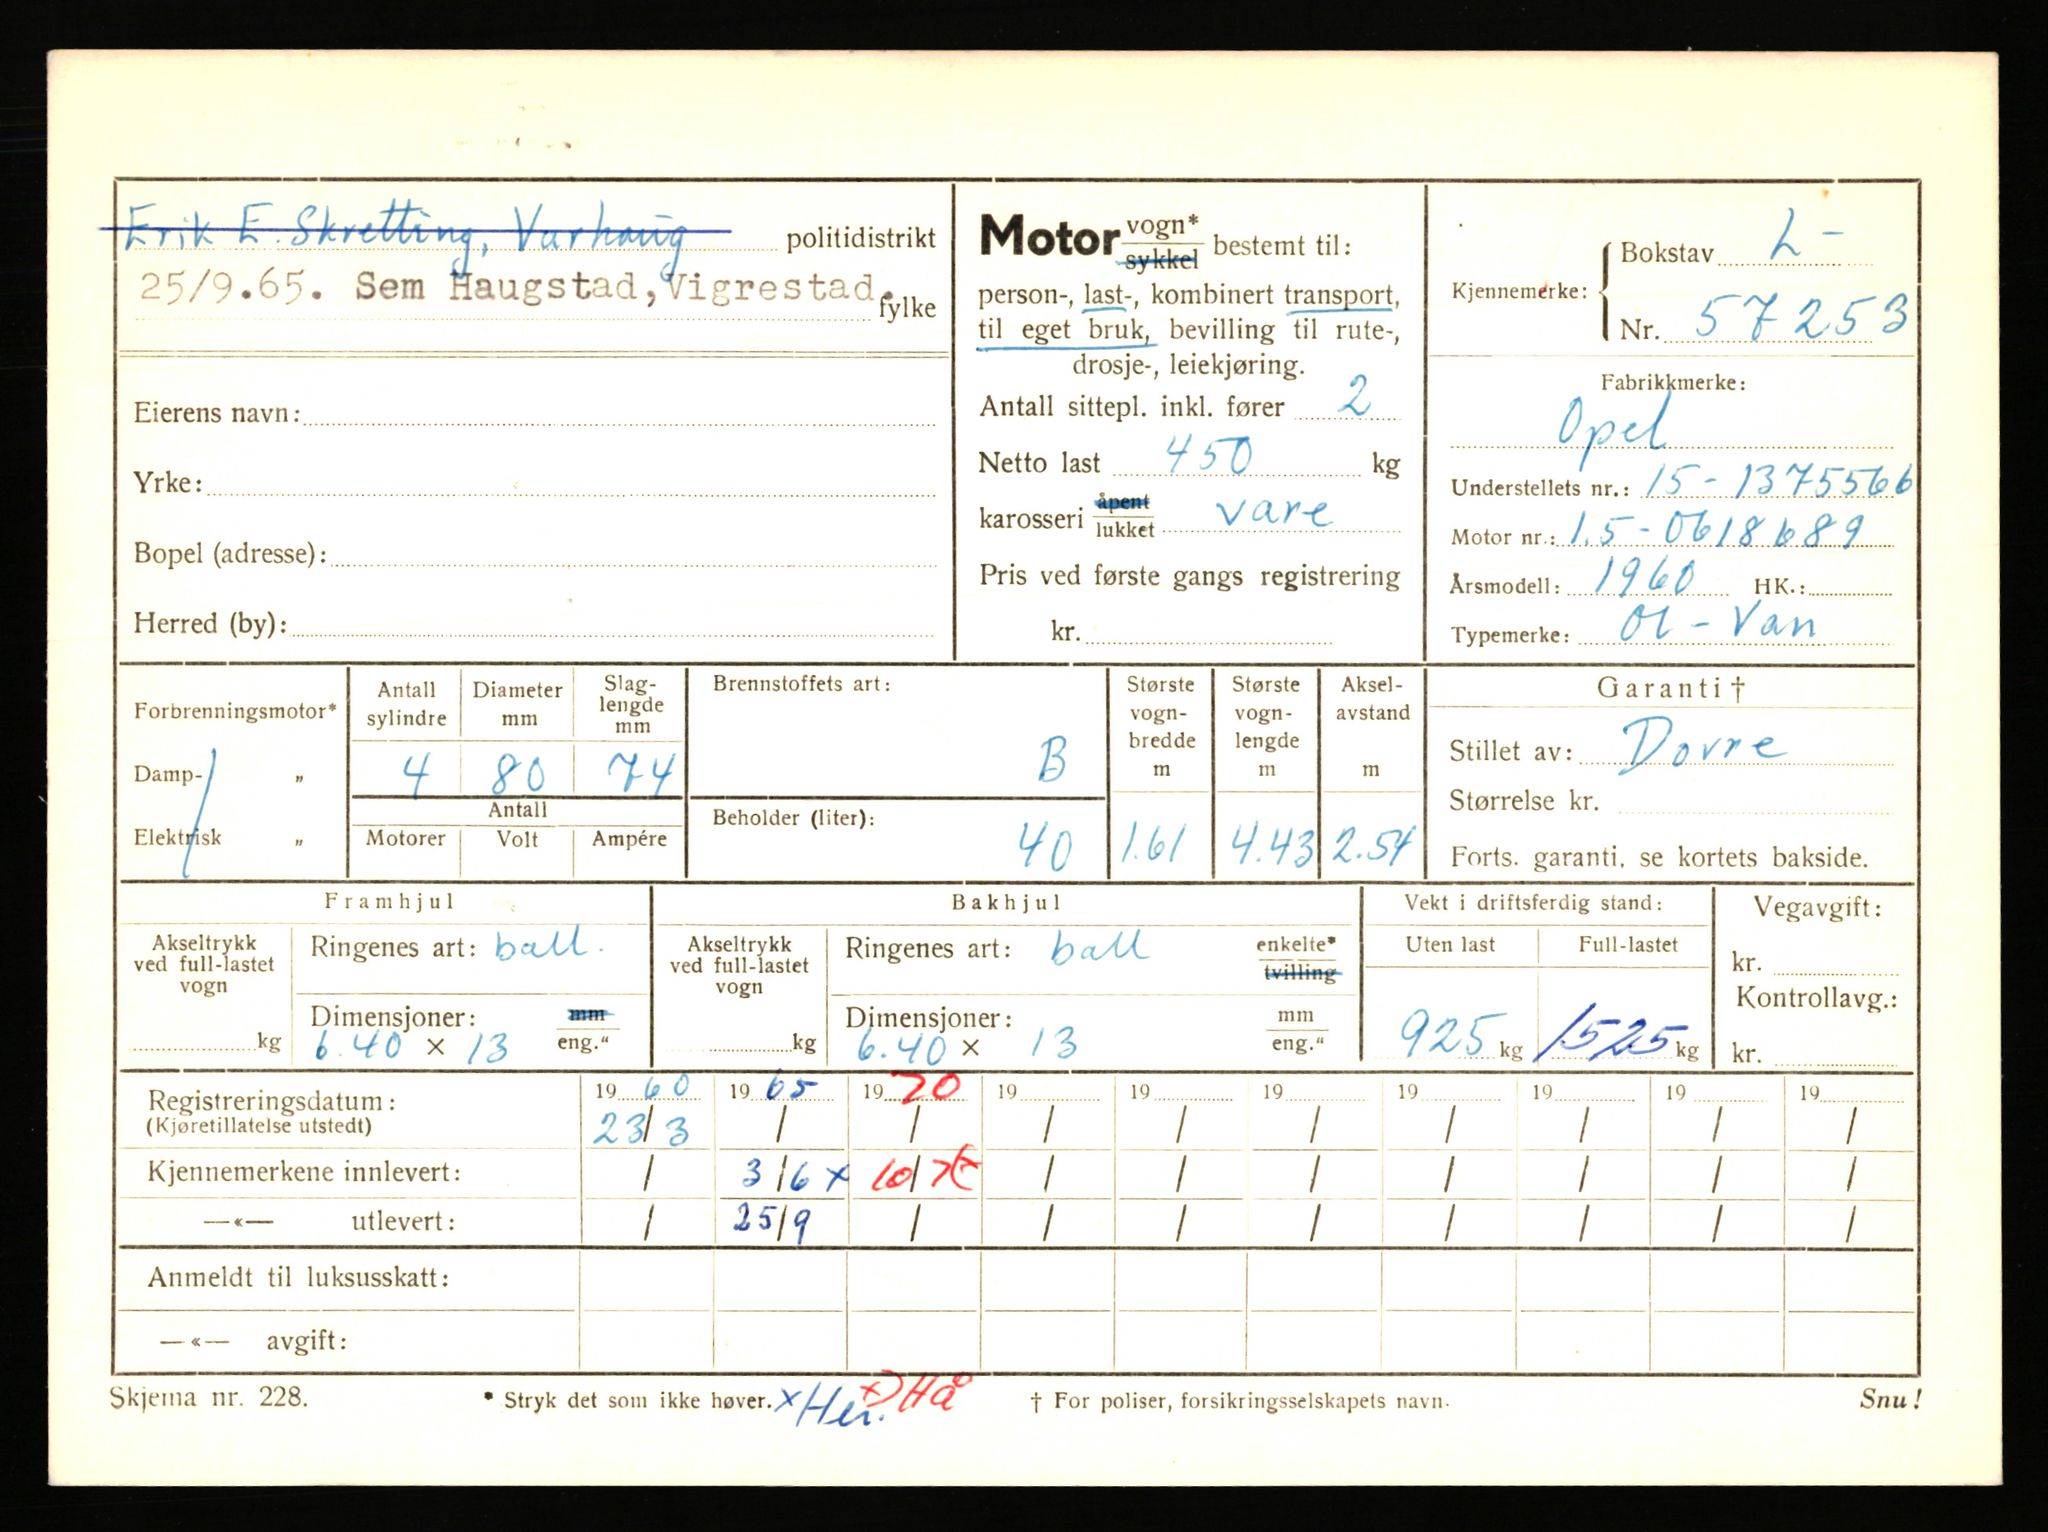 Erik E. Skretting, Varhaug politidistrikt
25/9.65. Sem Haugstad, Vigrestad. fylke
Eierens navn:
Yrke:
Bopel (adresse):
Herred (by):
Motor vogn* sykkel bestemt til:
person-, last-, kombinert transport,
til eget bruk, bevilling til rute-,
drosje-, leiekjøring.
Antall sittepl. inkl. fører 2
Netto last 450 kg
karosseri åpent lukket vare
Pris ved første gangs registrering
kr.
Kjennemerke: Bokstav L-
Nr. 57253
Fabrikkmerke:
Opel
Understellets nr.: 15-1375566
Motor nr.: 1.5-0618689
Årsmodell: 1960 HK.:
Typemerke: Ol-Van
Forbrenningsmotor*
Damp- „
Elektrisk „
Antall sylindre
4
Diameter mm
80
Slag-
lengde
mm
74
Antall
Motorer Volt Ampére
Brennstoffets art:
B
Beholder (liter):
40
Største
vogn-
bredde
m
1.61
Største
vogn-
lengde
m
4.43
Aksel-
avstand
m
2.54
Garanti †
Stillet av: Dovre
Størrelse kr.
Forts. garanti, se kortets bakside.
Framhjul
Akseltrykk
ved full-lastet
vogn
kg
Ringenes art: ball.
Dimensjoner: mm
6.40 × 13 eng."
Bakhjul
Akseltrykk
ved full-lastet
vogn
kg
Ringenes art: ball enkelte* tvilling
Dimensjoner: mm
6.40 × 13 eng."
Vekt i driftsferdig stand:
Uten last Full-lastet
925 kg 1525 kg
Vegavgift:
kr.
Kontrollavg.:
kr.
19 60 19 65 19 70 19 19 19 19 19 19 19
Registreringsdatum:
(Kjøretillatelse utstedt) 23/3 / / / / / / / / /
Kjennemerkene innlevert: / 3/6 x 10/ / / / / / / /
—«— utlevert: / 25/9 / / / / / / / /
Anmeldt til luksusskatt:
—«— avgift:
Skjema nr. 228. * Stryk det som ikke høver. x Her. x) Hå † For poliser, forsikringsselskapets navn. Snu!